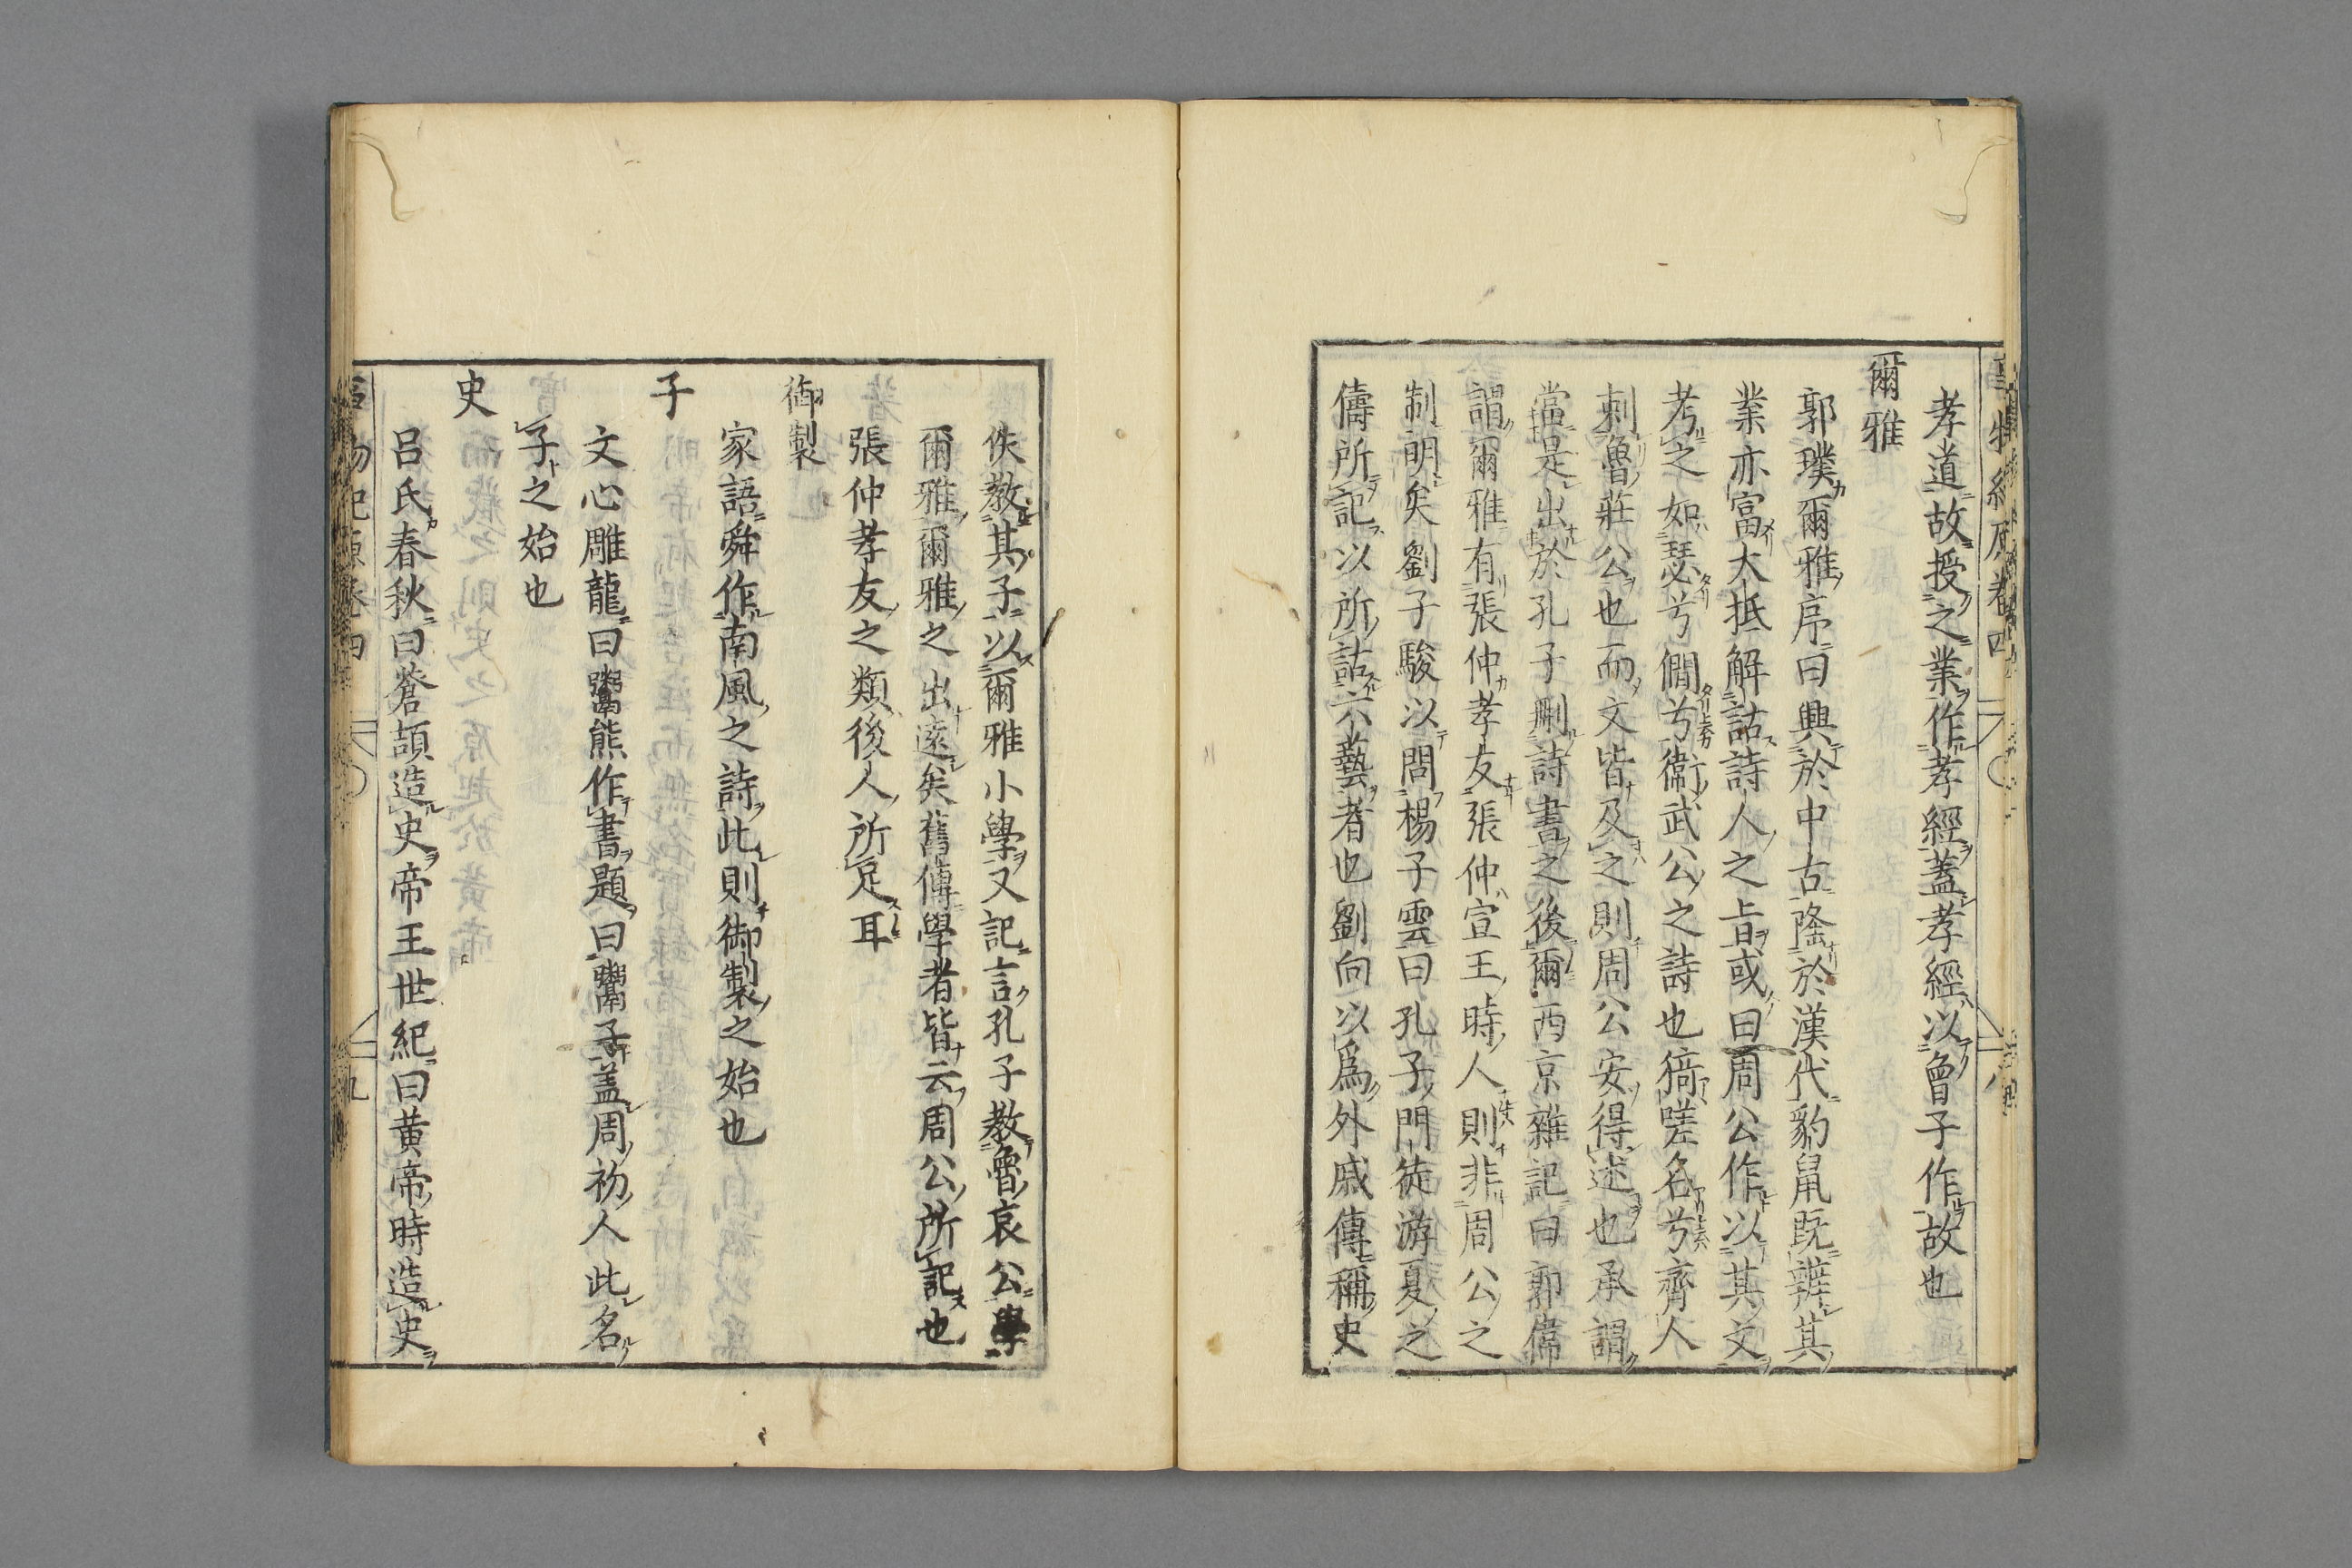 孝道故授之業作孝經蓋孝經以曾子作故也
爾雅
郭璞爾雅序曰興於中古隆於漢代豹鼠既辨其
業亦富大抵解詁詩人之旨或曰周公作以其文
考之如瑟兮僩兮衛武公之詩也猗嗟名兮齊人
刺魯莊公也而文皆及之則周公安得述也承謂
當是出於孔子刪詩書之後爾西京雜記曰郭偉
謂爾雅有張仲孝友張仲宣王時人則非周公之
制明矣劉子駿以問楊子雲曰孔子門徒游夏之
儔所記以所詁六藝者也劉向以爲外戚傳稱史
佚教其子以爾雅小學又記言孔子教魯哀公學
爾雅爾雅之出遠矣舊傳學者皆云周公所記也
張仲孝友之類後人所足耳
御製
家語舜作南風之詩此則御製之始也
子
文心雕龍曰鬻熊作書題曰鬻子盖周初人此名
子之始也
史
呂氏春秋曰蒼頡造史帝王世紀曰黄帝時造史